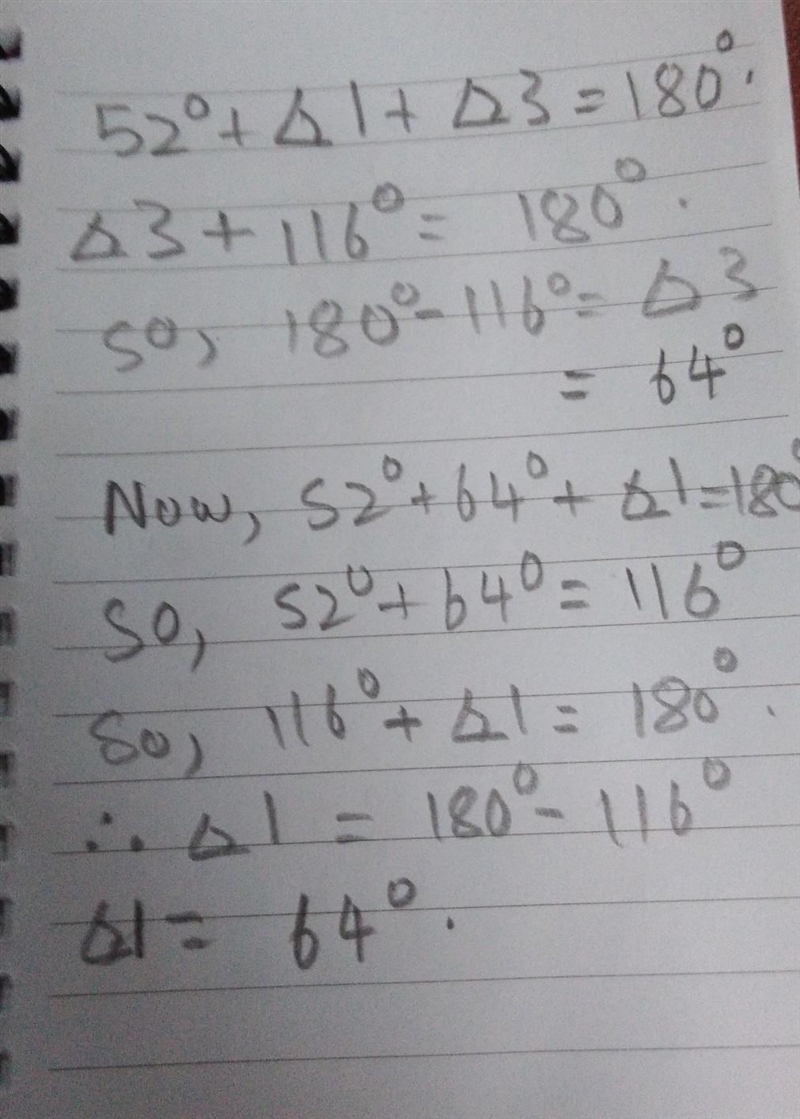 52° + Δ1 + Δ3 = 180°.
Δ3 + 116° = 180°.
So, 180° - 116° = Δ3
= 64°
Now, 52° + 64° + Δ1 = 180°
So, 52° + 64° = 116°
So, 116° + Δ1 = 180°.
∴ Δ1 = 180° - 116°
Δ1 = 64°.